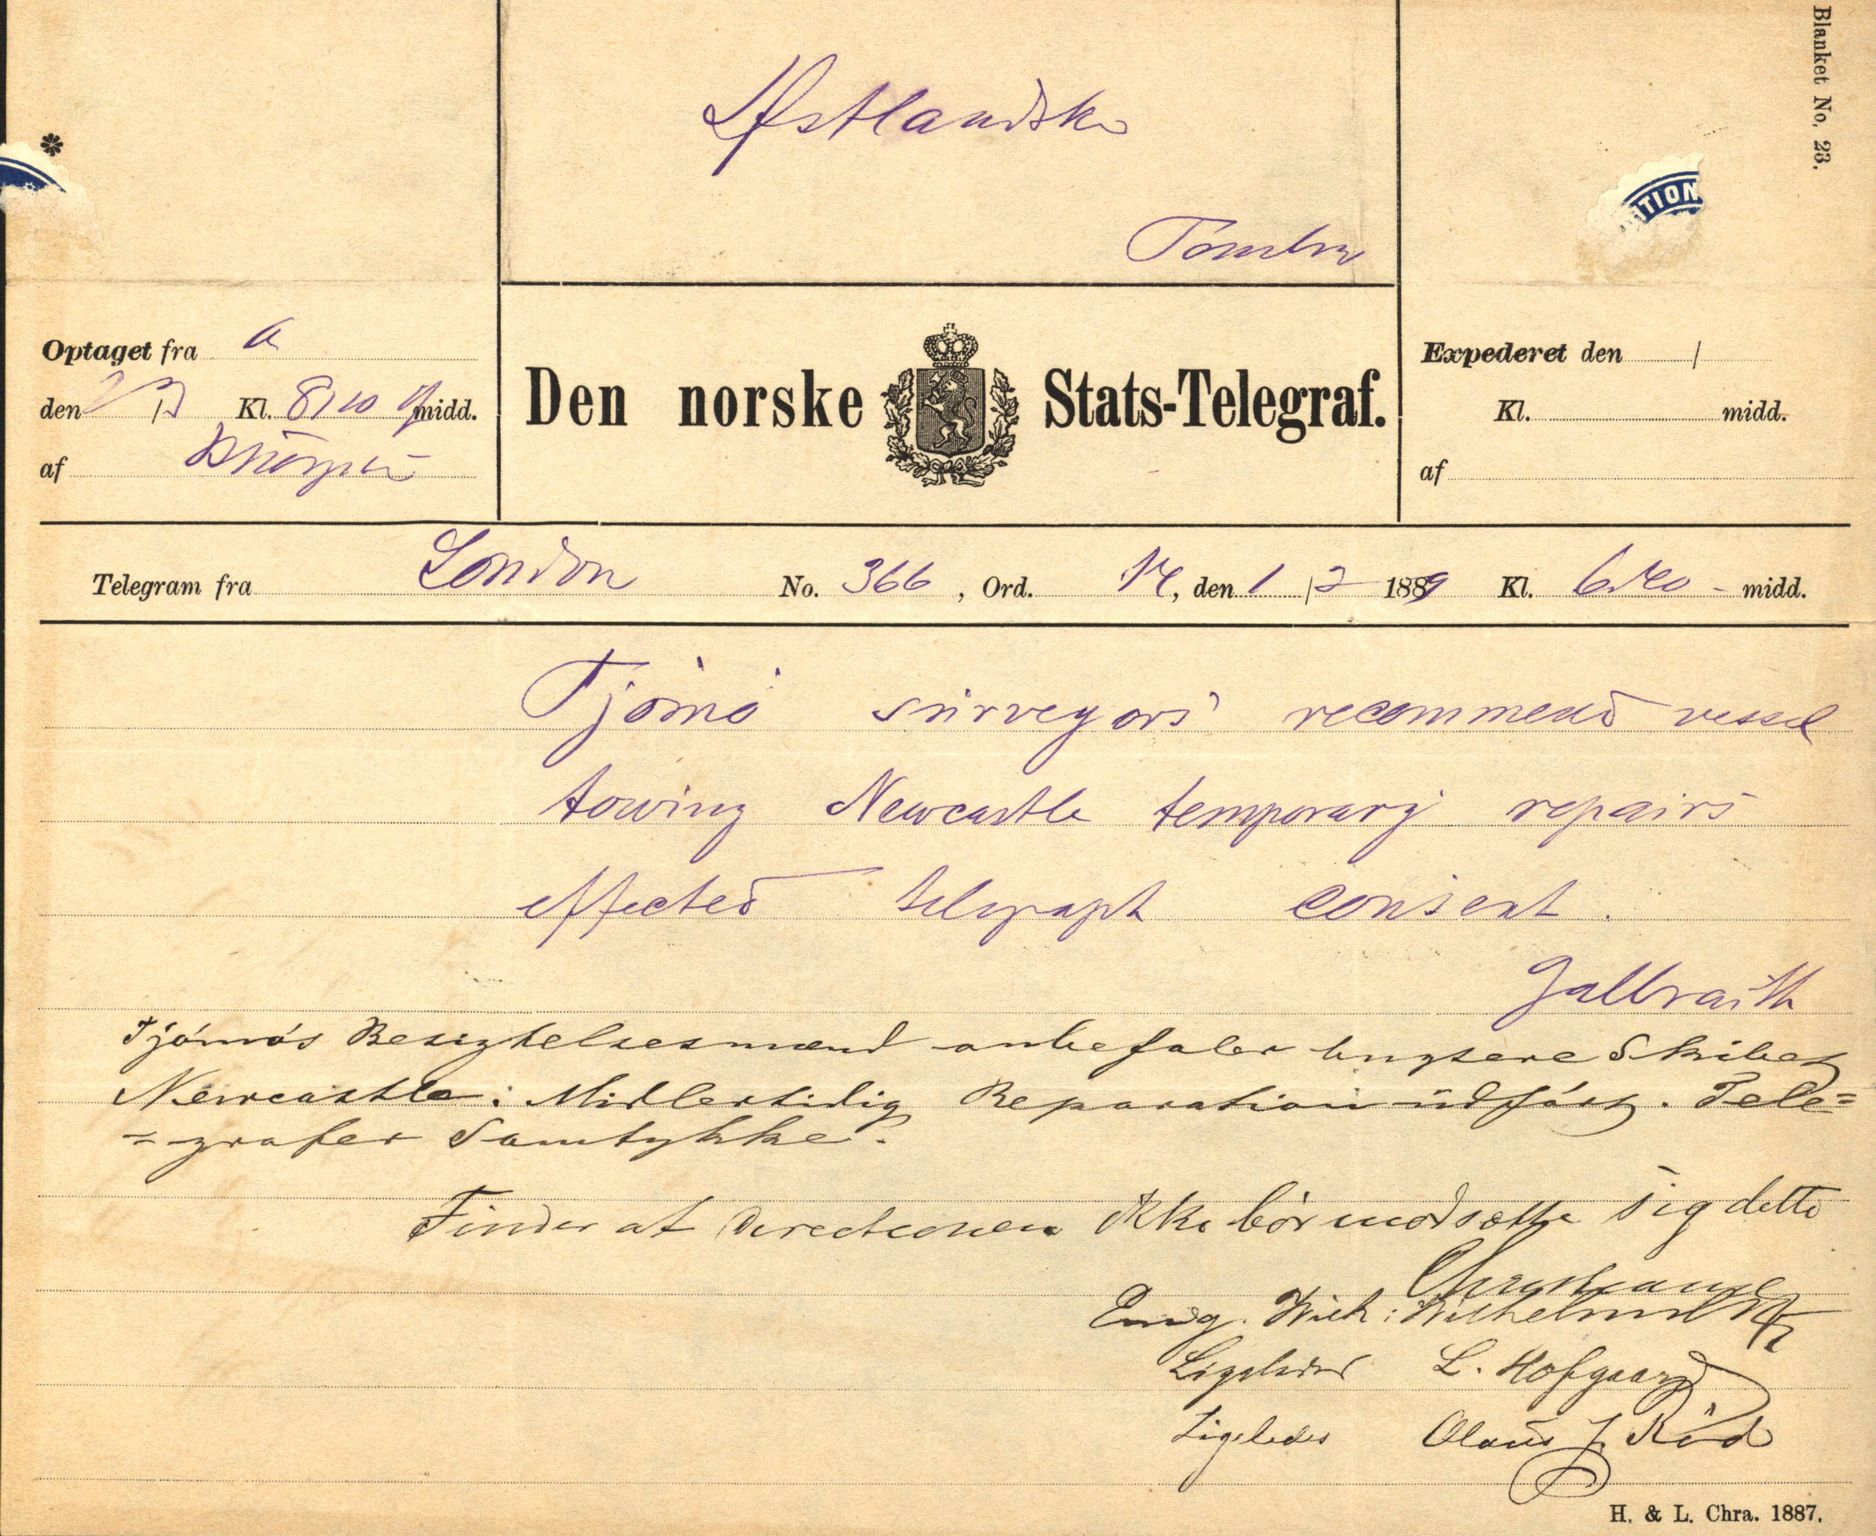 Blanket No. 23.
Østlandske
TION
Optaget fra a
den Kl. 8/10 midd.
af
Den norske Stats-Telegraf.
Expederet den /
Kl. midd.
af
Telegram fra London No. 366, Ord. 14, den 1/2 1889 Kl. 6.40 - midd.
Tjömö surveyors recommend vessel
towing Newcastle temporary repairs
effected telegraph consent.
Galbraith
Tjömös Besigtelsesmænd anbefaler bugsere Skibet
Newcastle: Midlertidig Reparation üdfört. Tele=
=grafer Samtykke.
Finder at Directionen ikke bör modsætte sig dette
Enig. Wilh: Wilhelmsen
Ligeledes L. Hofgaard
Ligeledes Olaus J. Röd
H. & L. Chra. 1887.